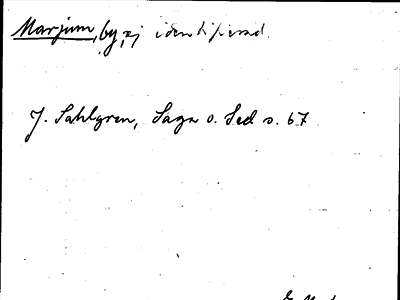 Marjum, by, ej identifierad.
J. Sahlgren, Saga o. Sed s. 67